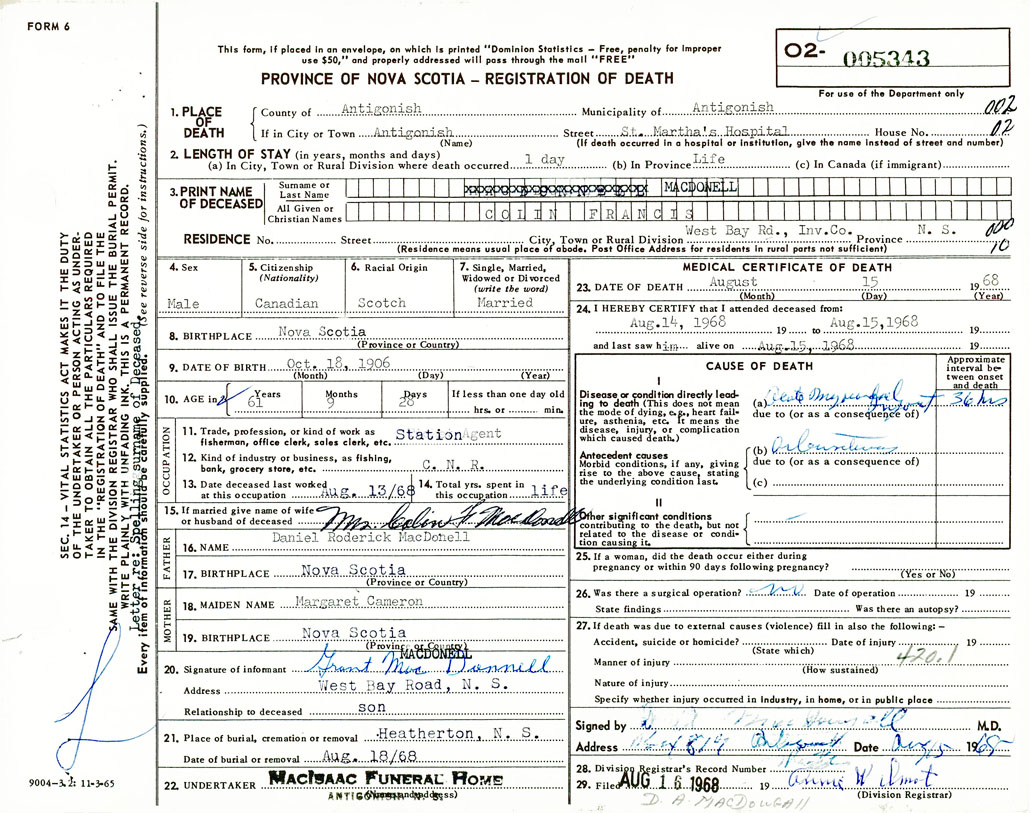 FORM 6
This form, if placed in an envelope, on which is printed "Dominion Statistics – Free, penalty for improper
use $50," and properly addressed will pass through the mail "FREE"
PROVINCE OF NOVA SCOTIA – REGISTRATION OF DEATH
O2- 005343
For use of the Department only
1. PLACE OF DEATH
County of Antigonish Municipality of Antigonish 002
If in City or Town Antigonish Street St. Martha's Hospital House No. 02
(Name) (If death occurred in a hospital or institution, give the name instead of street and number)
2. LENGTH OF STAY (in years, months and days)
(a) In City, Town or Rural Division where death occurred 1 day (b) In Province Life (c) In Canada (if immigrant)
3. PRINT NAME OF DECEASED
Surname or Last Name MACDONELL
All Given or Christian Names COLIN FRANCIS
RESIDENCE No. Street City, Town or Rural Division West Bay Rd., Inv.Co. Province N. S. 000
(Residence means usual place of abode. Post Office Address for residents in rural parts not sufficient) 10
4. Sex
Male
5. Citizenship
(Nationality)
Canadian
6. Racial Origin
Scotch
7. Single, Married,
Widowed or Divorced
(write the word)
Married
8. BIRTHPLACE Nova Scotia
(Province or Country)
9. DATE OF BIRTH Oct. 18, 1906
(Month) (Day) (Year)
10. AGE in Years Months Days If less than one day old
61 9 28 hrs. or min.
OCCUPATION
11. Trade, profession, or kind of work as
fisherman, office clerk, sales clerk, etc. Station Agent
12. Kind of industry or business, as fishing,
bank, grocery store, etc. C. N. R.
13. Date deceased last worked
at this occupation Aug. 13/68
14. Total yrs. spent in
this occupation life
15. If married give name of wife
or husband of deceased Mrs. Colin F MacDonell
FATHER
16. NAME Daniel Roderick MacDonell
17. BIRTHPLACE Nova Scotia
(Province or Country)
MOTHER
18. MAIDEN NAME Margaret Cameron
19. BIRTHPLACE Nova Scotia
(Province or Country)
MACDONELL
20. Signature of informant Grant Mac Donnell
Address West Bay Road, N. S.
Relationship to deceased son
21. Place of burial, cremation or removal Heatherton, N. S.
Date of burial or removal Aug. 18/68
22. UNDERTAKER MacIsaac Funeral Home
ANTIGONISH N. S.
(Name and address)
MEDICAL CERTIFICATE OF DEATH
23. DATE OF DEATH August 15 1968
(Month) (Day) (Year)
24. I HEREBY CERTIFY that I attended deceased from:
Aug.14, 1968 19 to Aug.15,1968 19
and last saw him alive on Aug.15, 1968 19
CAUSE OF DEATH
Approximate
interval be-
tween onset
and death
I
Disease or condition directly lead-
ing to death (This does not mean
the mode of dying, e.g., heart fail-
ure, asthenia, etc. It means the
disease, injury, or complication
which caused death.)
(a) 36 hrs
due to (or as a consequence of)
Antecedent causes
Morbid conditions, if any, giving
rise to the above cause, stating
the underlying condition last.
(b)
due to (or as a consequence of)
(c)
II
Other significant conditions
contributing to the death, but not
related to the disease or condi-
tion causing it.
25. If a woman, did the death occur either during
pregnancy or within 90 days following pregnancy?
(Yes or No)
26. Was there a surgical operation? no Date of operation 19
State findings Was there an autopsy?
27. If death was due to external causes (violence) fill in also the following: –
Accident, suicide or homicide? Date of injury 19
(State which) 420.1
Manner of injury
(How sustained)
Nature of injury
Specify whether injury occurred in industry, in home, or in public place
Signed by M.D.
Address Date Aug 15 1968
28. Division Registrar's Record Number
29. Filed AUG 16 1968 19 Annie W Wilmot
(Division Registrar)
D. A. MACDOUGALL
SEC. 14 – VITAL STATISTICS ACT MAKES IT THE DUTY
OF THE UNDERTAKER OR PERSON ACTING AS UNDER-
TAKER TO OBTAIN ALL THE PARTICULARS REQUIRED
IN THE "REGISTRATION OF DEATH" AND TO FILE THE
SAME WITH THE DIVISION REGISTRAR WHO SHALL ISSUE THE BURIAL PERMIT.
WRITE PLAINLY WITH UNFADING INK. THIS IS A PERMANENT RECORD.
Letter re: Spelling surname of Deceased.
Every item of information should be carefully supplied. (See reverse side for instructions.)
9004-3.2: 11-3-65